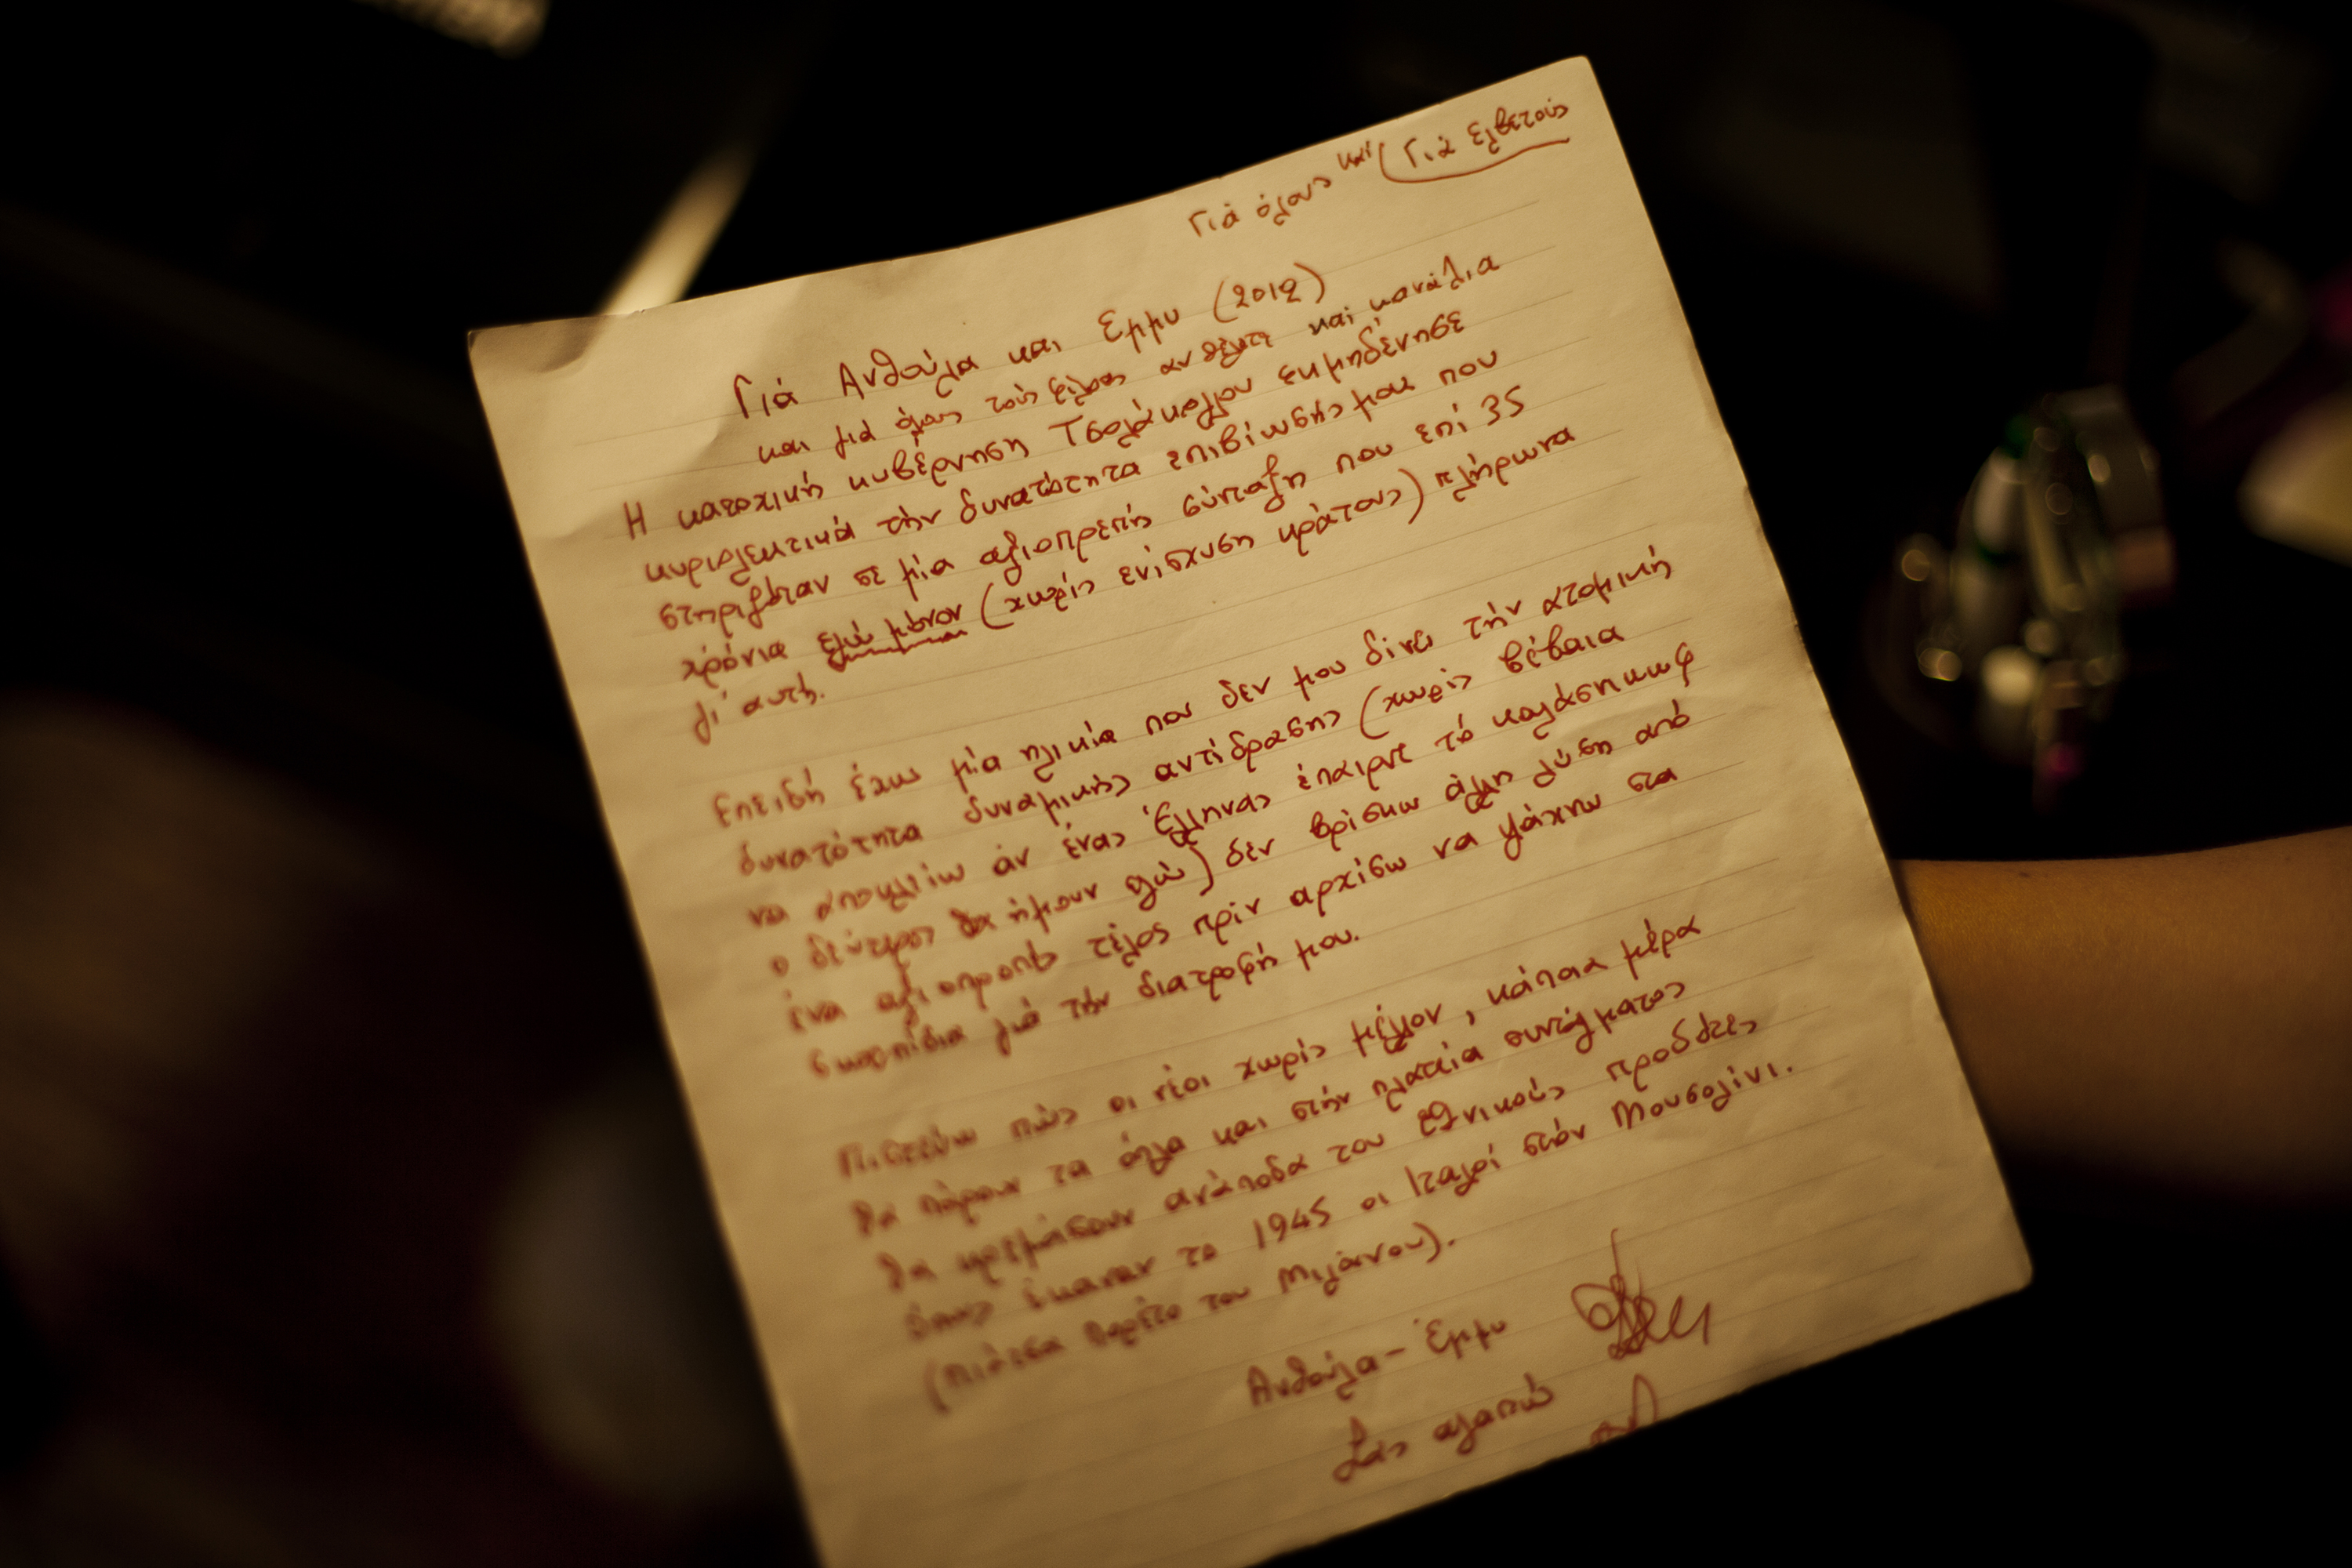 Γιά όλους καί (Γιά Ελβετούς
Γιά Ανθούλα και Εμμυ (2012)
και γιά όλους τούς φίλους αν θέλετε και κανάλια
Η κατοχική κυβέρνηση Τσολάκογλου εκμηδένησε
κυριολεκτικά τήν δυνατότητα επιβίωσής μου που
στηριζόταν σε μία αξιοπρεπής σύνταξη που επί 35
χρόνια εγώ μόνον (χωρίς ενίσχυση κράτους) πλήρωνα
γι' αυτή.
Επειδή έχω μία ηλικία που δεν μου δίνει τήν ατομική
δυνατότητα δυναμικής αντίδρασης (χωρίς βέβαια
να αποκλείω άν ένας Έλληνας έπαιρνε τό καλάσηκωφ
ο δεύτερος θα ήμουν εγώ) δέν βρίσκω άλλη λύση από
ένα αξιοπρεπές τέλος πρίν αρχίσω να ψάχνω στα
σκουπίδια γιά τήν διατροφή μου.
Πιστεύω πώς οι νέοι χωρίς μέλλον, κάποια μέρα
θα πάρουν τα όπλα και στήν πλατεία συντάγματος
θα κρεμάσουν ανάποδα του εθνικούς προδότες
όπως έκαναν το 1945 οι Ιταλοί στόν Μουσολίνι.
(Πιάτσα Λορέτο του Μιλάνου).
Ανθούλα - Έμμυ
Σας αγαπώ